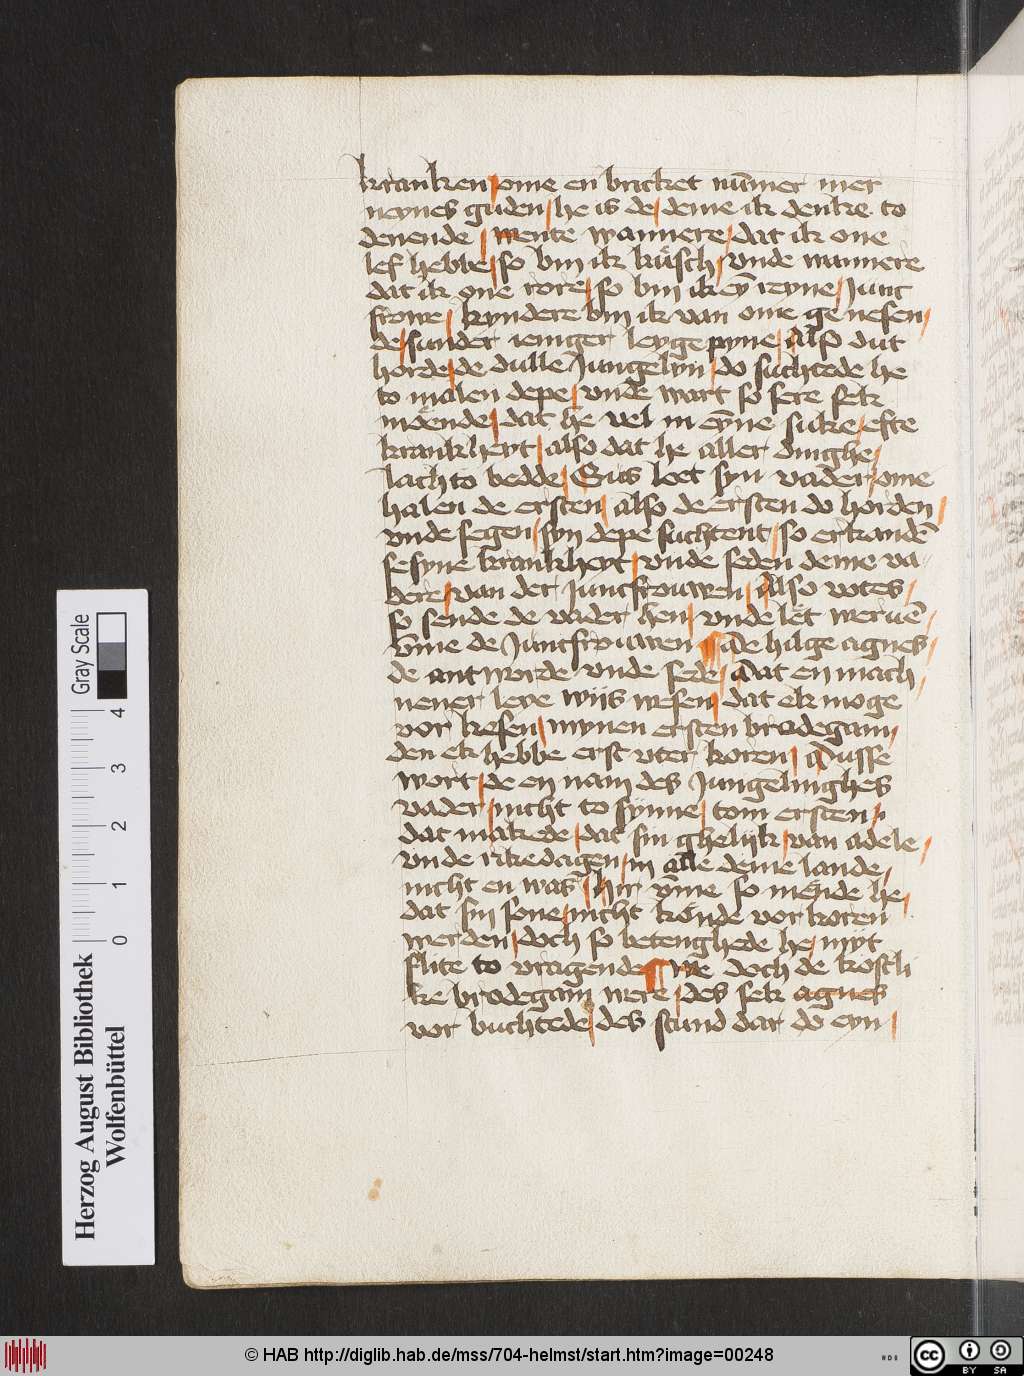 kranken / ome en bricket num̄er mer
neynes guden / he is de / deme ik denke to
denende / wente wannere / dat ik one
lef hebbe / so bin ik kuͤsch / vnde wannere
dat ik one rore / so bin ik eȳ reyne / Junc
frowe / kyndere bin ik van ome ge nesen /
de / sunder ieniger leyge pyne / Also dut
horde / de dulle Jungelyn / do suchtede he
to malen depe / vnde wart so sere sek
indende / dat he vel in eyne suke / efte
krankheyt / also dat he aller dinghe /
lach to bedde / Sus leet syn vader / ome
halen de ersten / also de ersten do horden /
vnde segen / syn depe suchtent / so erkandē
se syne krankheyt / vnde seden deme va-
dere / van der Juncfrouwen / Also votes /
so sende de vader hen / vnde leͤt weruē /
vm̄e de Juncfrouwen ¶ De hilge agnes /
de antworde vnde sede / Dat en mach /
nener leye wiis wesen / dat ek moge
vor kesen / mynen ersten bradegam /
den ek hebbe erst vter koren / Dusse
wort / de en nam des Jungelinghes
vader / nicht to synne / tom ersten /.
dat makede / dat sin gheliik / van adele /
vnde rikedagen / in alle deme lande /
nicht en was / hir vm̄e so meͤnde he /
dat sin sone / nicht konde vor koren
werden / doch so betenghede he / myt
flite to vragende ¶ we doch de kostli
ke bradegam were / des sek agnes
vor buchtede / des stund dar do eyn /
Herzog August Bibliothek
Wolfenbüttel
Gray Scale
0 1 2 3 4
© HAB http://diglib.hab.de/mss/704-helmst/start.htm?image=00248
HAB
cc BY SA